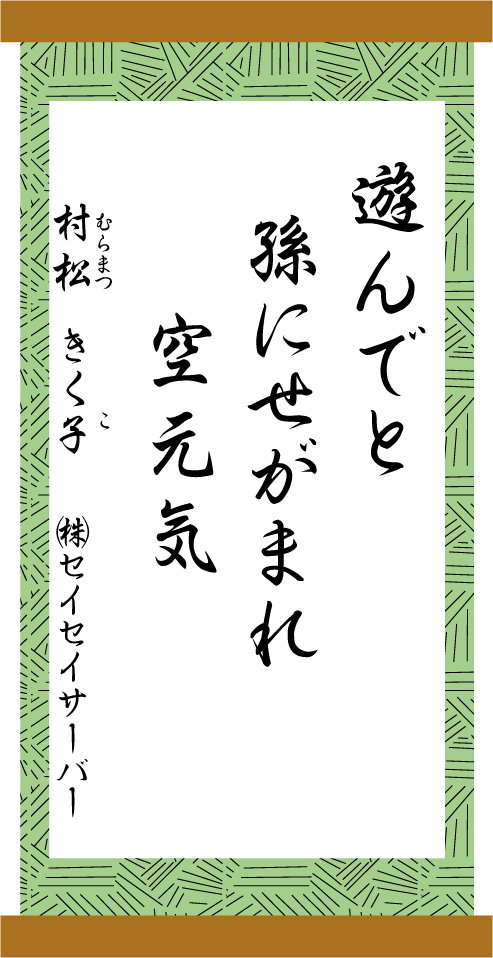 遊んでと
孫にせがまれ
空元気
村松 きく子 ㈱セイセイサーバー
むらまつ こ